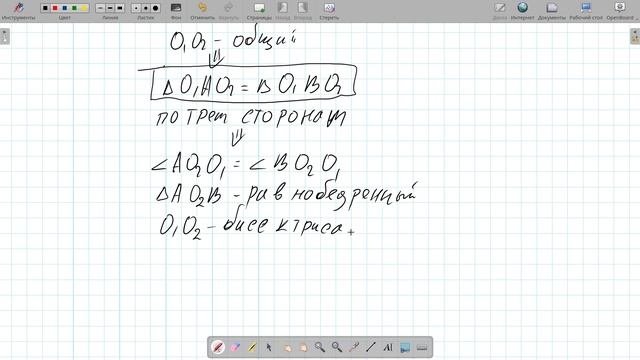 Инструменты Цвет Линия Ластик Фон Отменить Вернуть Страницы Назад Вперед Стереть Доска Интернет Документы Рабочий стол OpenBoard
O₁O₂ - общий
⇓
ΔO₁AO₂ = ΔO₁BO₂
по трем сторонам
⇓
∠AO₂O₁ = ∠BO₂O₁
ΔAO₂B - равнобедренный
O₁O₂ - биссектриса